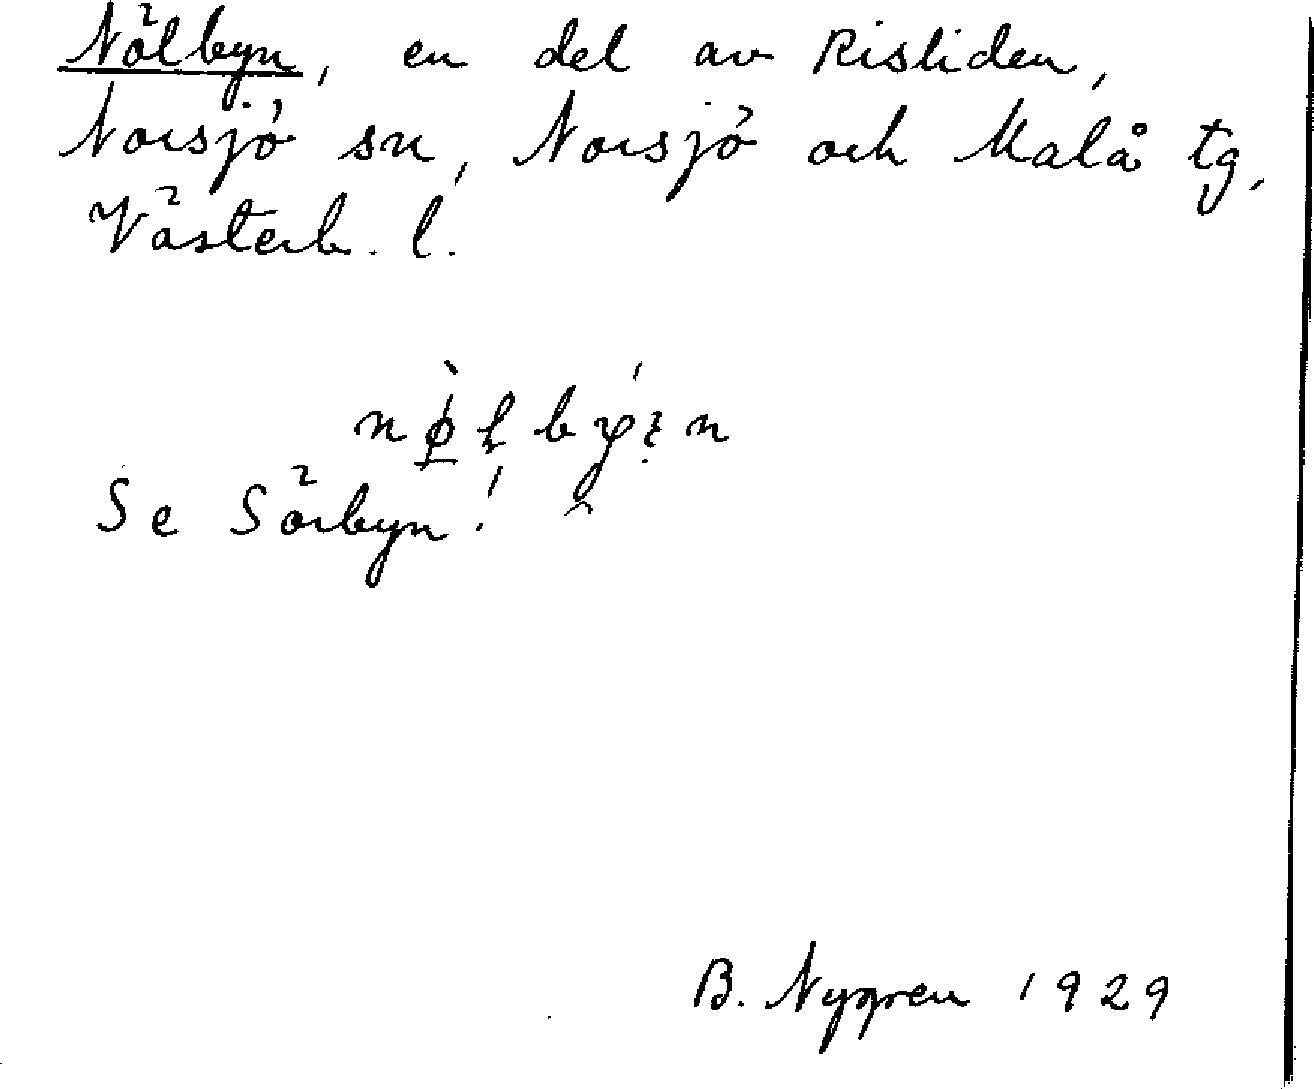 Nölbyn, en del av Risliden,
Norsjö sn, Norsjö och Malå tg,
Västerb. l.
Se Sörbyn!
B. Nygren 1929